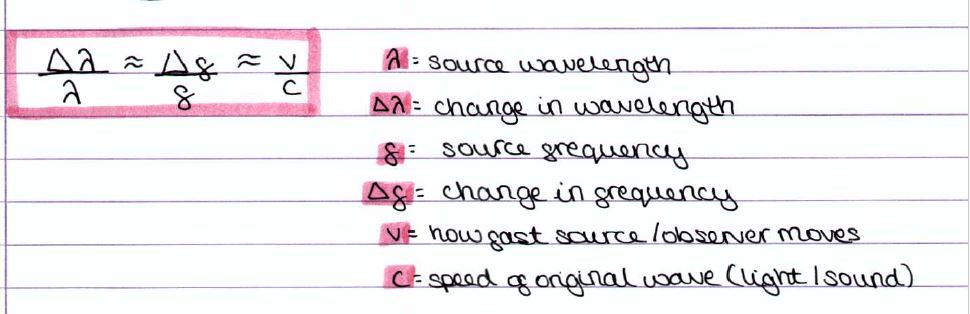 Δλ/λ ≈ Δf/f ≈ v/c
λ = source wavelength
Δλ = change in wavelength
f = source frequency
Δf = change in frequency
v = how fast source / observer moves
c = speed of original wave (light / sound)